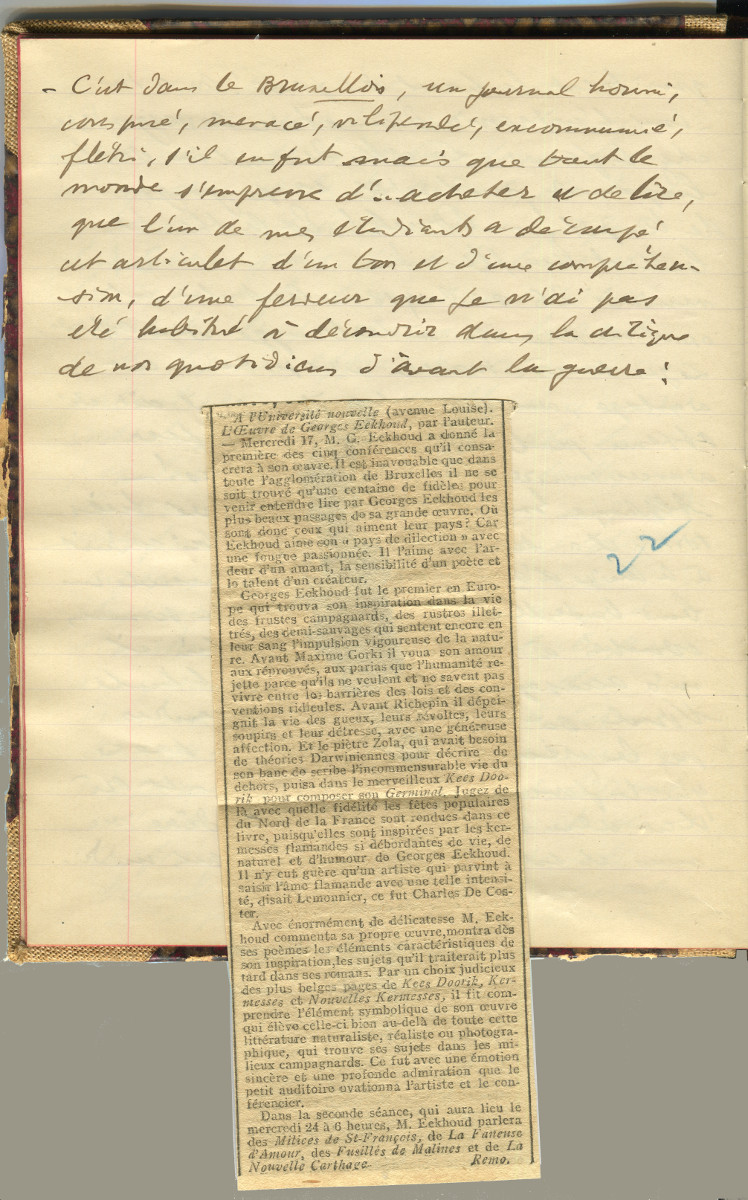 - C'est dans le Bruxellois, un journal honni,
conspué, menacé, vilipendé, excommunié,
flétri, s'il en fut mais que tout le
monde s'empresse d'..acheter et de lire,
que l'un de mes étudiants a découpé
cet articulet d'un ton et d'une compréhen-
sion, d'une ferveur que je n'ai pas
été habitué à découvrir dans la critique
de nos quotidiens d'avant la guerre :
A l'Université nouvelle (avenue Louise).
L'Œuvre de Georges Eekhoud, par l'auteur.
— Mercredi 17, M. G. Eekhoud a donné la
première des cinq conférences qu'il consa-
crera à son œuvre. Il est inavouable que dans
toute l'agglomération de Bruxelles il ne se
soit trouvé qu'une centaine de fidèles pour
venir entendre lire par Georges Eekhoud les
plus beaux passages de sa grande œuvre. Où
sont donc ceux qui aiment leur pays? Car
Eekhoud aime son « pays de dilection » avec
une fougue passionnée. Il l'aime avec l'ar-
deur d'un amant, la sensibilité d'un poète et
le talent d'un créateur.
Georges Eekhoud fut le premier en Euro-
pe qui trouva son inspiration dans la vie
des frustes campagnards, des rustres illet-
trés, des demi-sauvages qui sentent encore en
leur sang l'impulsion vigoureuse de la natu-
re. Avant Maxime Gorki il voua son amour
aux réprouvés, aux parias que l'humanité re-
jette parce qu'ils ne veulent et ne savent pas
vivre entre les barrières des lois et des con-
ventions ridicules. Avant Richepin il dépei-
gnit la vie des gueux, leurs révoltes, leurs
soupirs et leur détresse, avec une généreuse
affection. Et le piètre Zola, qui avait besoin
de théories Darwiniennes pour décrire de
son banc de scribe l'incommensurable vie du
dehors, puisa dans le merveilleux Kees Doo-
rik pour composer son Germinal. Jugez de
là avec quelle fidélité les fêtes populaires
du Nord de la France sont rendues dans ce
livre, puisqu'elles sont inspirées par les ker-
messes flamandes si débordantes de vie, de
naturel et d'humour de Georges Eekhoud.
Il n'y eut guère qu'un artiste qui parvint à
saisir l'âme flamande avec une telle intensi-
té, disait Lemonnier, ce fut Charles De Cos-
ter.
Avec énormément de délicatesse M. Eek-
houd commenta sa propre œuvre, montra dès
ses poèmes les éléments caractéristiques de
son inspiration, les sujets qu'il traiterait plus
tard dans ses romans. Par un choix judicieux
des plus belges pages de Kees Doorik, Ker-
messes et Nouvelles Kermesses, il fit com-
prendre l'élément symbolique de son œuvre
qui élève celle-ci bien au-delà de toute cette
littérature naturaliste, réaliste ou photogra-
phique, qui trouve ses sujets dans les mi-
lieux campagnards. Ce fut avec une émotion
sincère et une profonde admiration que le
petit auditoire ovationna l'artiste et le con-
férencier.
Dans la seconde séance, qui aura lieu le
mercredi 24 à 6 heures, M. Eekhoud parlera
des Milices de St-François, de La Faneuse
d'Amour, des Fusillés de Malines et de La
Nouvelle Carthage Remo.
22